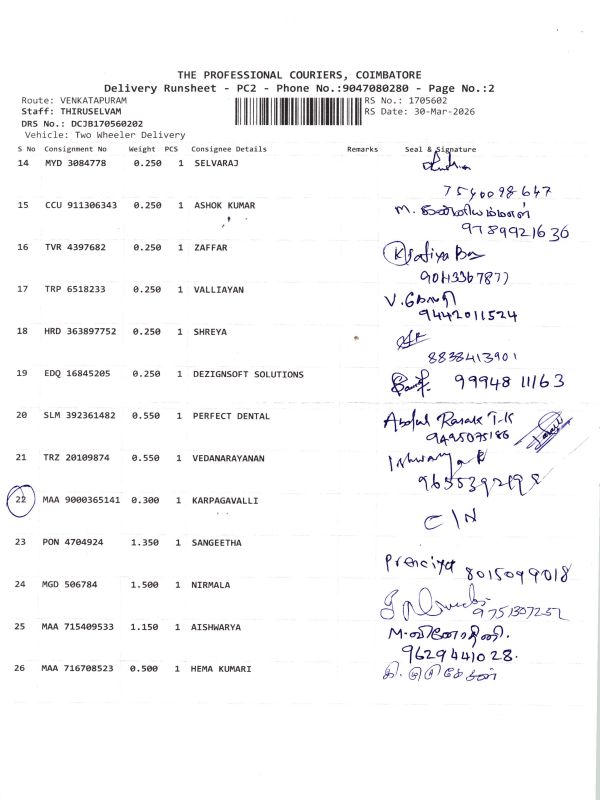 THE PROFESSIONAL COURIERS, COIMBATORE
Delivery Runsheet - PC2 - Phone No.:9047080280 - Page No.:2
Route: VENKATAPURAM
RS No.: 1705602
Staff: THIRUSELVAM
RS Date: 30-Mar-2026
DRS No.: DCJB170560202
Vehicle: Two Wheeler Delivery
S No Consignment No Weight PCS Consignee Details Remarks Seal & Signature
14 MYD 3084778 0.250 1 SELVARAJ
7540098647
15 CCU 911306343 0.250 1 ASHOK KUMAR
M.
9789921636
16 TVR 4397682 0.250 1 ZAFFAR
17 TRP 6518233 0.250 1 VALLIAYAN
V.
9442011524
18 HRD 363897752 0.250 1 SHREYA
8838413901
19 EDQ 16845205 0.250 1 DEZIGNSOFT SOLUTIONS
99948 11163
20 SLM 392361482 0.550 1 PERFECT DENTAL
Abdul Razak T.K
9495075186
21 TRZ 20109874 0.550 1 VEDANARAYANAN
Ishwarya R
22 MAA 9000365141 0.300 1 KARPAGAVALLI
C/N
23 PON 4704924 1.350 1 SANGEETHA
Prenciya 8015099018
24 MGD 506784 1.500 1 NIRMALA
9751307252
25 MAA 715409533 1.150 1 AISHWARYA
M. வினோதினி.
9629441028.
26 MAA 716708523 0.500 1 HEMA KUMARI